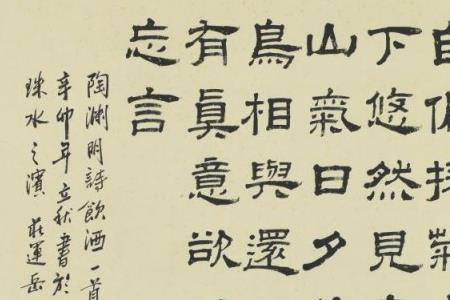 自偏採菊
下悠然見
山氣日夕
鳥相與還
有真意欲
忘言
陶渊明詩飲酒一首
辛卯年立秋書於
珠水之濱 莊運岳